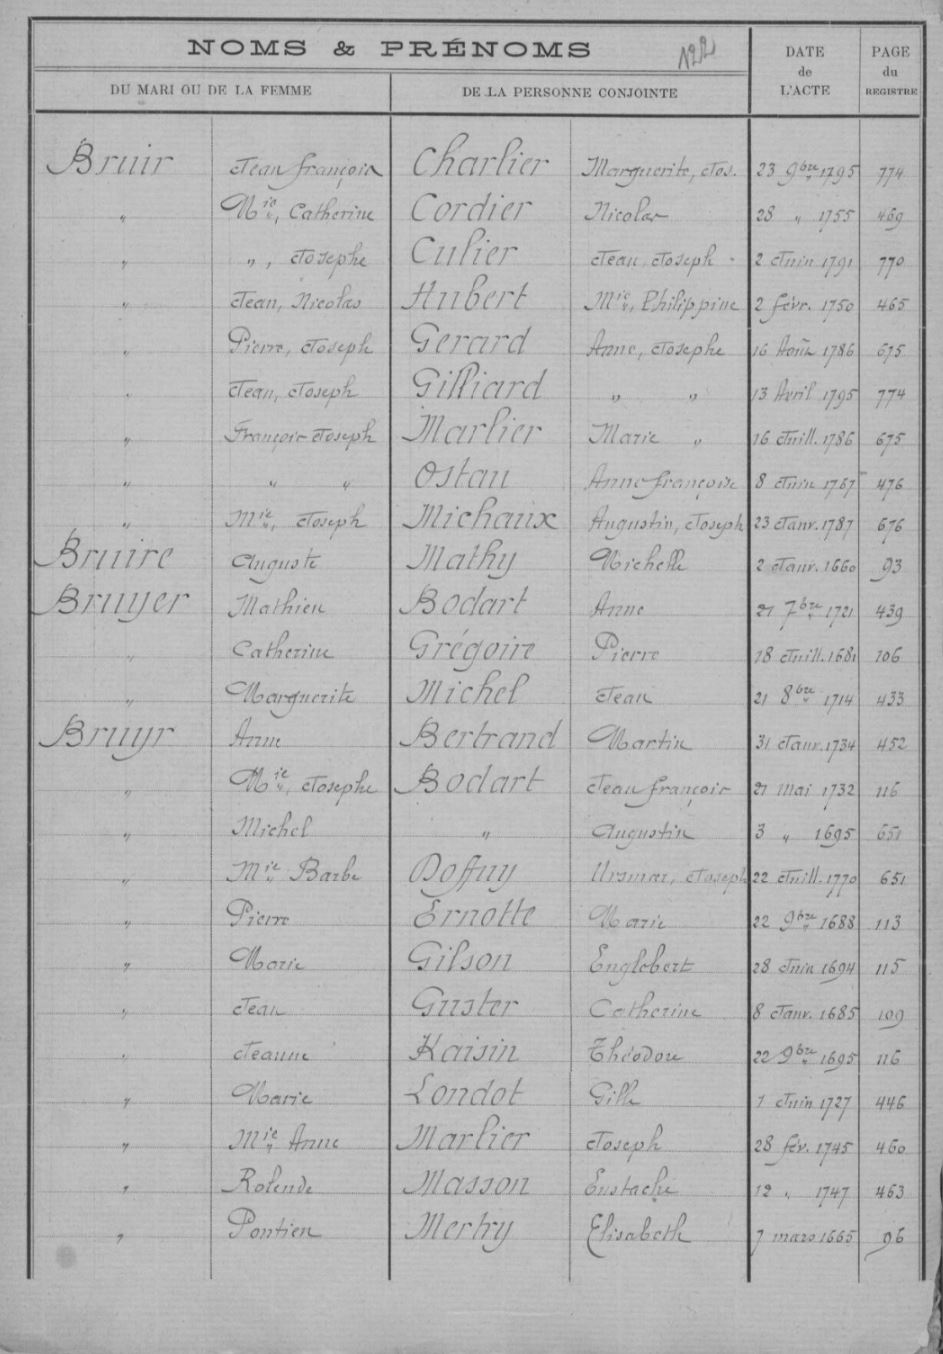 NOMS & PRÉNOMS
DATE de L'ACTE
PAGE du REGISTRE
DU MARI OU DE LA FEMME
DE LA PERSONNE CONJOINTE
Bruir Jean françois Charlier Marguerite, Jos. 23 9bre 1795 774
" Mie, Catherine Cordier Nicolas 28 " 1755 469
" ", Josephe Culier Jean, Joseph 2 Juin 1791 770
" Jean, Nicolas Hubert Mie, Philippine 2 févr. 1750 465
" Pierre, Joseph Gerard Anne, Josephe 16 Août 1786 675
" Jean, Joseph Gilliard " " 13 Avril 1795 774
" François Joseph Marlier Marie " 16 Juill. 1786 675
" " " Ostau Anne françoise 8 Juin 1767 476
" Mie, Joseph Michaux Augustin, Joseph 23 Janr. 1787 676
Bruire Auguste Mathy Michelle 2 Janr. 1660 93
Bruyer Mathieu Bodart Anne 21 7bre 1721 439
" Catherine Grégoire Pierre 18 Juill. 1681 106
" Marguerite Michel Jean 21 8bre 1714 433
Bruyr Anne Bertrand Martin 31 Janr. 1734 452
" Mie, Josephe Bodart Jean françois 21 Mai 1732 116
" Michel " Augustin 3 " 1695 651
" Mie Barbe Doffuy Ursmar, Joseph 22 Juill. 1770 651
" Pierre Ernotte Marie 22 9bre 1688 113
" Marie Gilson Englebert 28 Juin 1694 115
" Jean Guster Catherine 8 Janr. 1685 109
" Jeanne Kaisin Théodore 22 9bre 1695 116
" Marie Londot Gille 1 Juin 1727 446
" Mie Anne Marlier Joseph 28 fév. 1745 460
" Rolende Masson Eustache 12 " 1747 463
" Pontien Merhy Elisabeth 7 mars 1665 96